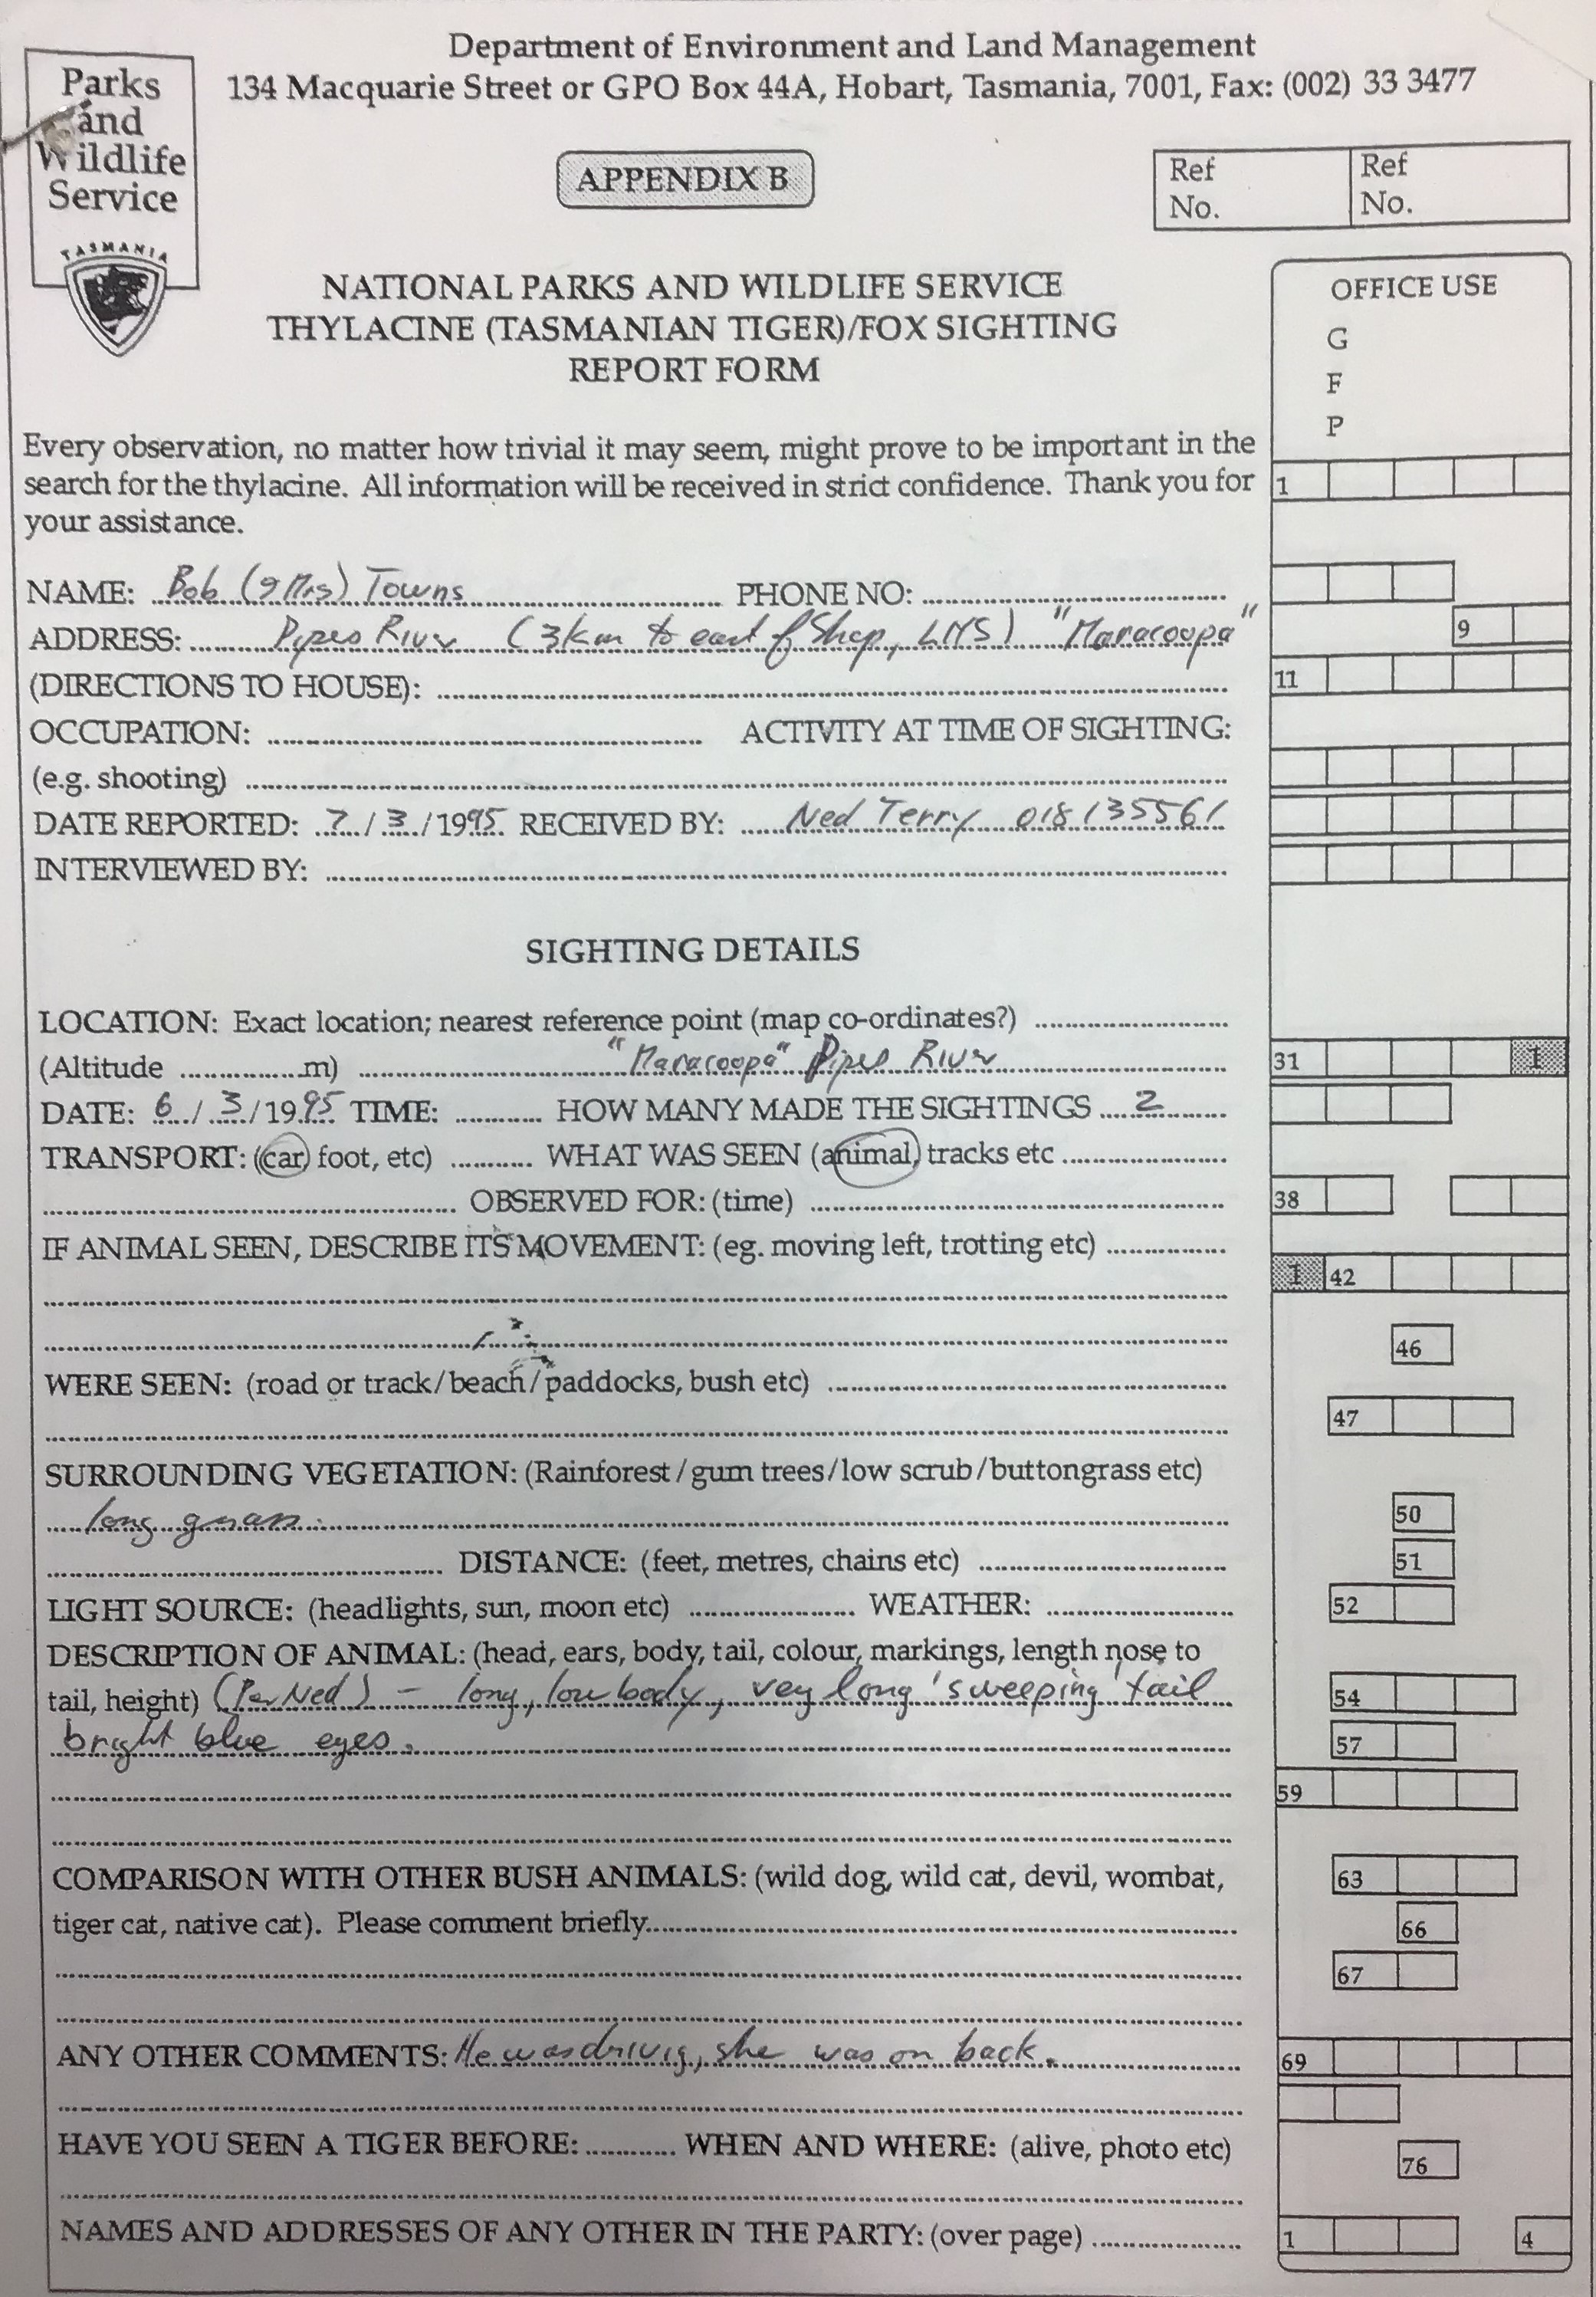 Department of Environment and Land Management
134 Macquarie Street or GPO Box 44A, Hobart, Tasmania, 7001, Fax: (002) 33 3477
Parks
and
Wildlife
Service
TASMANIA
APPENDIX B
Ref
No.
Ref
No.
NATIONAL PARKS AND WILDLIFE SERVICE
THYLACINE (TASMANIAN TIGER)/FOX SIGHTING
REPORT FORM
OFFICE USE
G
F
P
Every observation, no matter how trivial it may seem, might prove to be important in the
search for the thylacine. All information will be received in strict confidence. Thank you for
your assistance.
1
NAME: Bob (& Mrs) Towns PHONE NO:
ADDRESS: Pipes River (3km to east of Shop, LHS) "Maracoopa"
9
(DIRECTIONS TO HOUSE):
11
OCCUPATION: ACTIVITY AT TIME OF SIGHTING:
(e.g. shooting)
DATE REPORTED: 7/3/1995 RECEIVED BY: Ned Terry 018 135561
INTERVIEWED BY:
SIGHTING DETAILS
LOCATION: Exact location; nearest reference point (map co-ordinates?)
(Altitude m) "Maracoopa" Pipes River
31 1
DATE: 6/3/1995 TIME: HOW MANY MADE THE SIGHTINGS 2
TRANSPORT: (car) foot, etc) WHAT WAS SEEN (animal, tracks etc
OBSERVED FOR: (time)
38
IF ANIMAL SEEN, DESCRIBE ITS MOVEMENT: (eg. moving left, trotting etc)
1 42
46
WERE SEEN: (road or track/beach/paddocks, bush etc)
47
SURROUNDING VEGETATION: (Rainforest/gum trees/low scrub/buttongrass etc)
long grass.
50
DISTANCE: (feet, metres, chains etc)
51
LIGHT SOURCE: (headlights, sun, moon etc) WEATHER:
52
DESCRIPTION OF ANIMAL: (head, ears, body, tail, colour, markings, length nose to
tail, height) (Per Ned) - long, low body, very long 'sweeping' tail
54
bright blue eyes.
57
59
COMPARISON WITH OTHER BUSH ANIMALS: (wild dog, wild cat, devil, wombat,
63
tiger cat, native cat). Please comment briefly
66
67
ANY OTHER COMMENTS: He was driving, she was on back.
69
HAVE YOU SEEN A TIGER BEFORE: WHEN AND WHERE: (alive, photo etc)
76
NAMES AND ADDRESSES OF ANY OTHER IN THE PARTY: (over page)
1 4